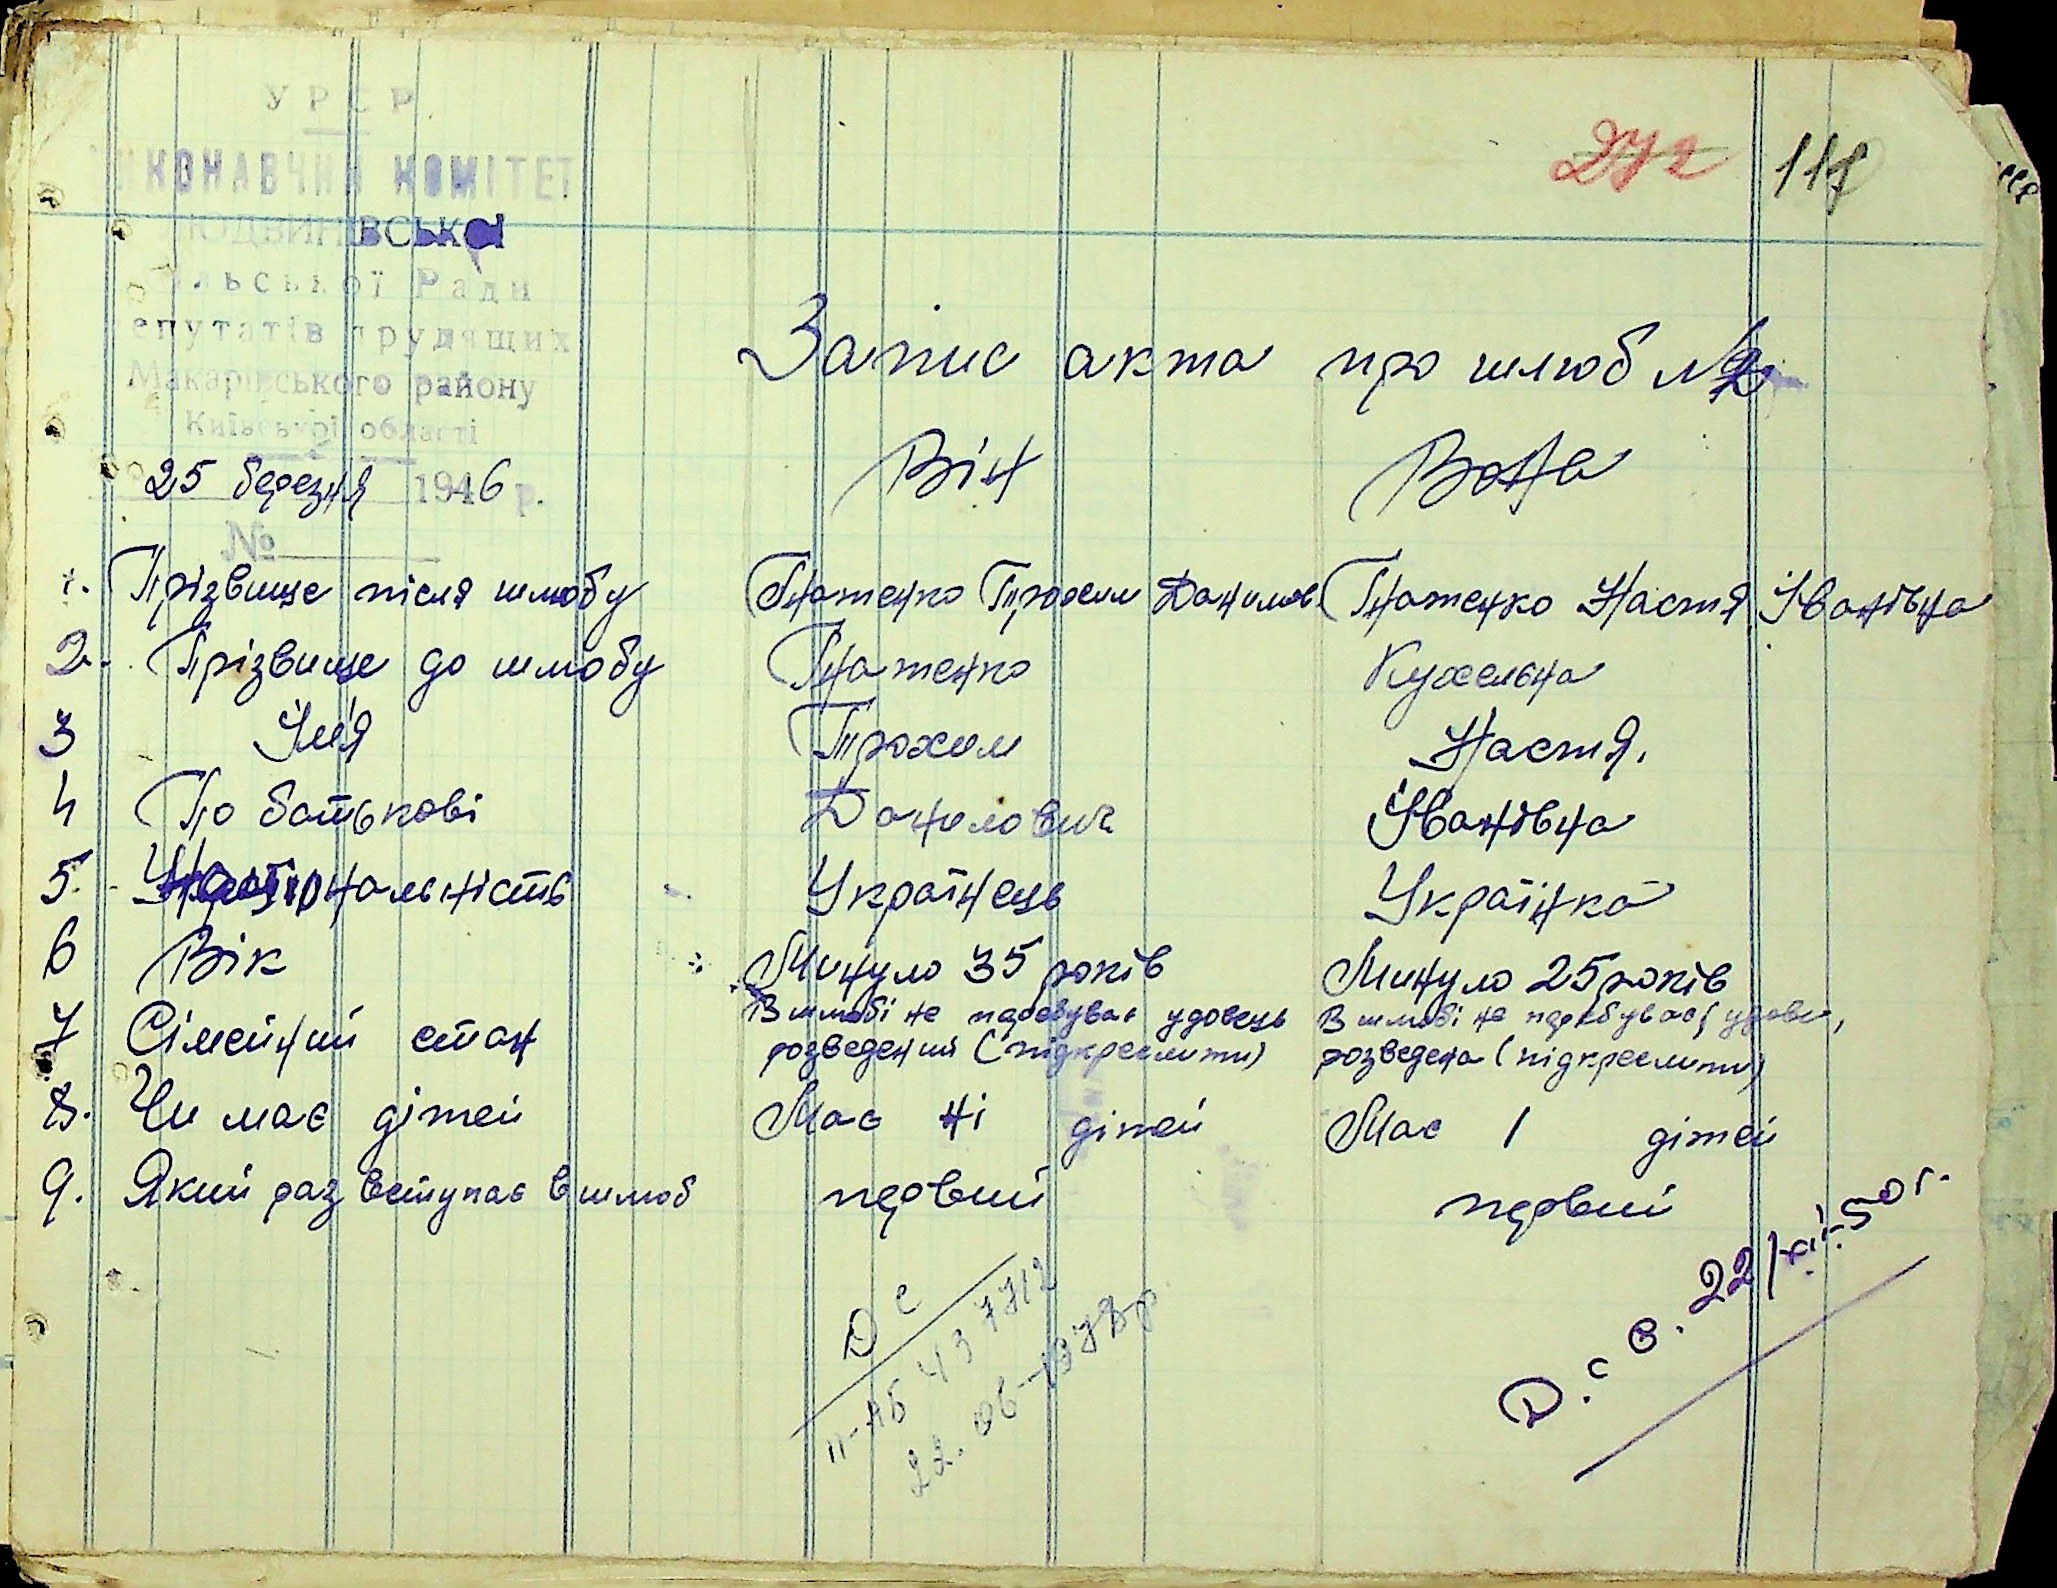 УРСР
ВИКОНАВЧИЙ КОМІТЕТ
ЛЮДВИНІВСЬКОЇ
Сільської Ради
депутатів трудящих
Макарівського району
Київської області
25 березня 1946 р.
№
272 117
Запис акта про шлюб №2
Він Вона
1. Прізвище після шлюбу Гнатенко Прохим Данилов. Гнатенко Настя Іванівна
2. Прізвище до шлюбу Гнатенко Кухельна
3 Ім'я Прохим Настя.
4 По батькові Данилович Іванівна
5. Національність Українець Українка
6 Вік Минуло 35 років Минуло 25 років
7 Сімейний стан В шлюбі не перебуває удовець розведений (підкреслити) В шлюбі не перебуває, удова, розведена (підкреслити)
8. Чи має дітей Має ні дітей Має 1 дітей
9. Який раз вступає в шлюб первий первий
Д с
II-АБ 437712
22.06-1978р.
Д. с в. 22/XII-50 г.